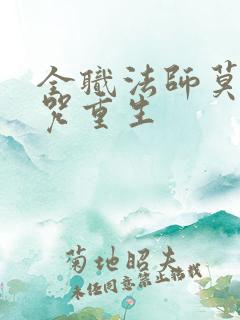 全職法師莫
咒重生
菊地昭夫
未经同意禁止转载